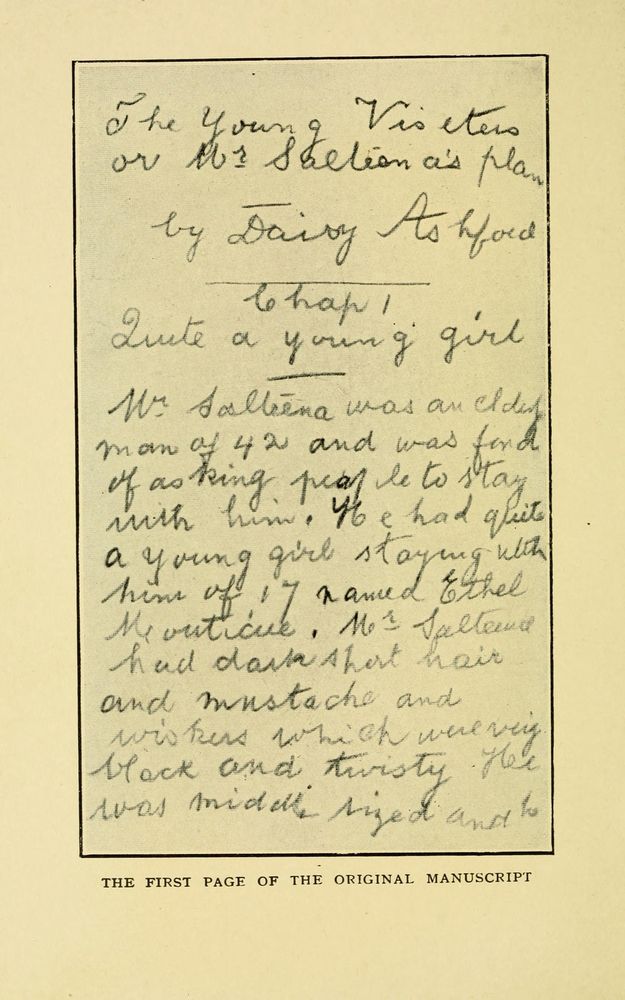 The Young Visiters
or Mr Salteena's plan
by Daisy Ashford
Chap 1
Quite a young girl
Mr Salteena was an eldery
man of 42 and was fond
of asking people to stay
with him. He had quite
a young girl staying with
him of 17 named Ethel
Monticue. Mr Salteena
had dark short hair
and mustache and
wiskers which were very
black and twisty He
was middle sized and h
THE FIRST PAGE OF THE ORIGINAL MANUSCRIPT